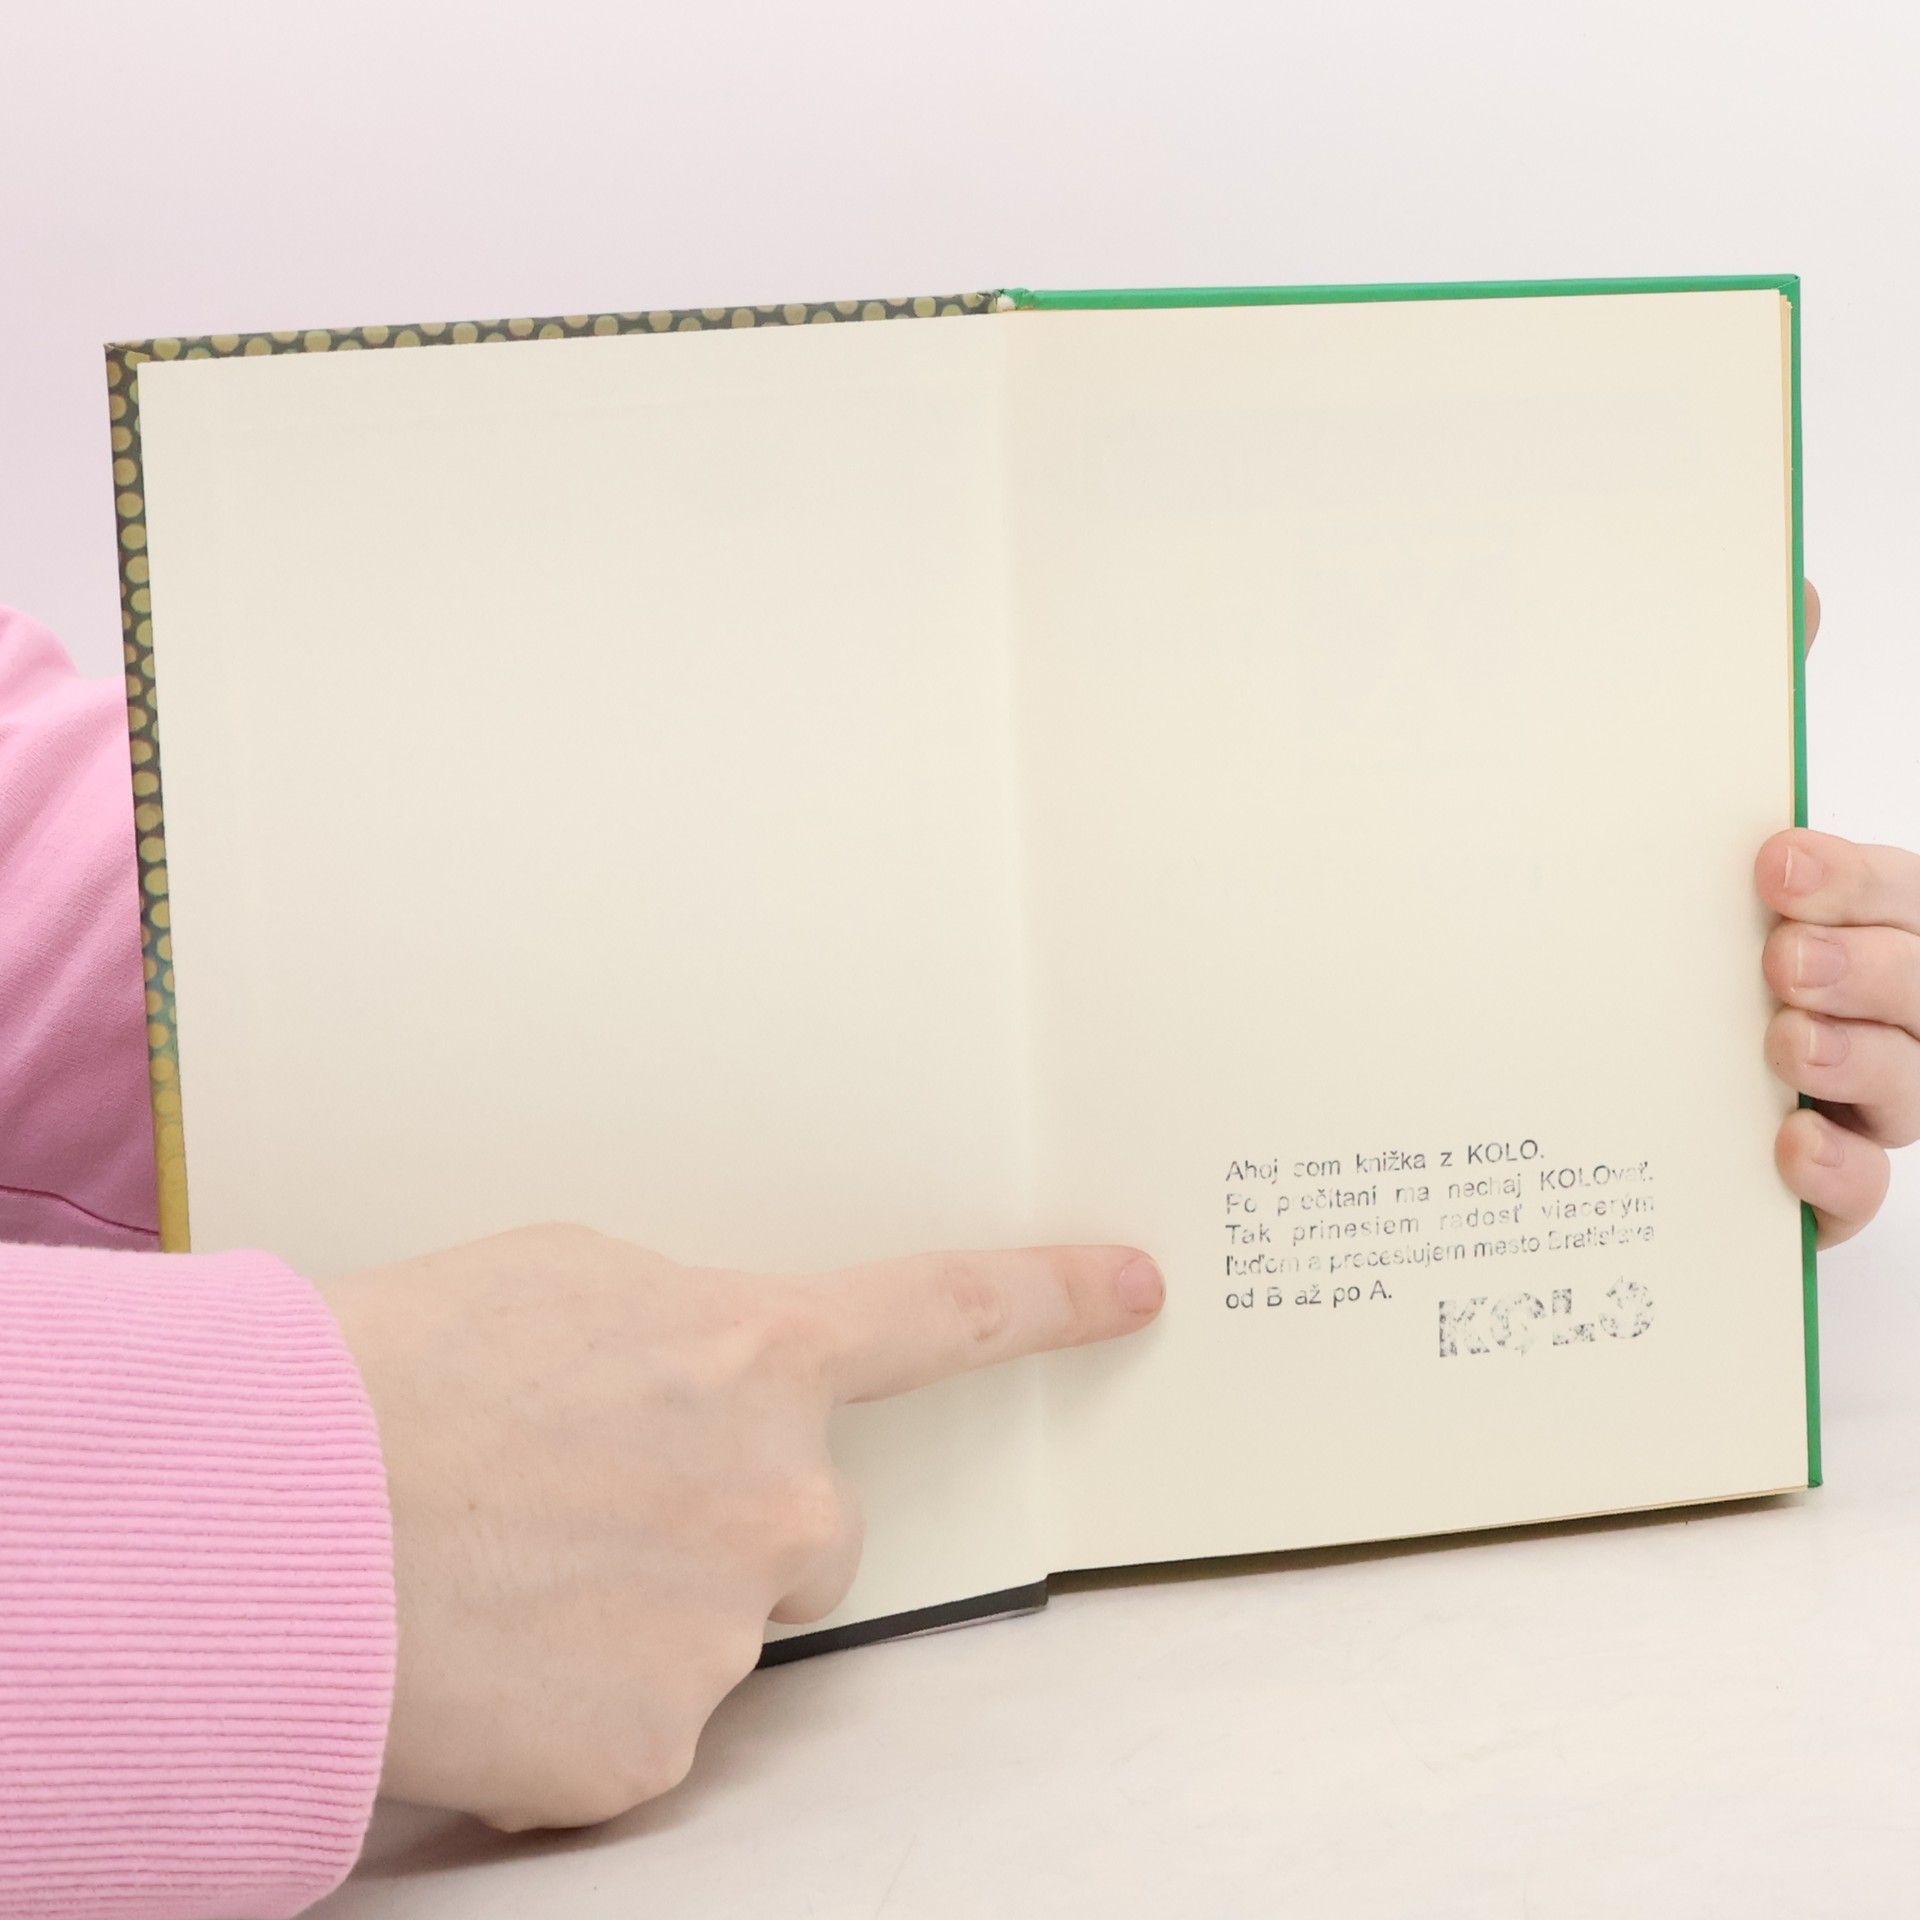 Ahoj som knižka z KOLO.
Po prečítaní ma nechaj KOLOvať.
Tak prinesiem radosť viacerým
ľuďom a precestujem mesto Bratislava
od B až po A.
KOLO